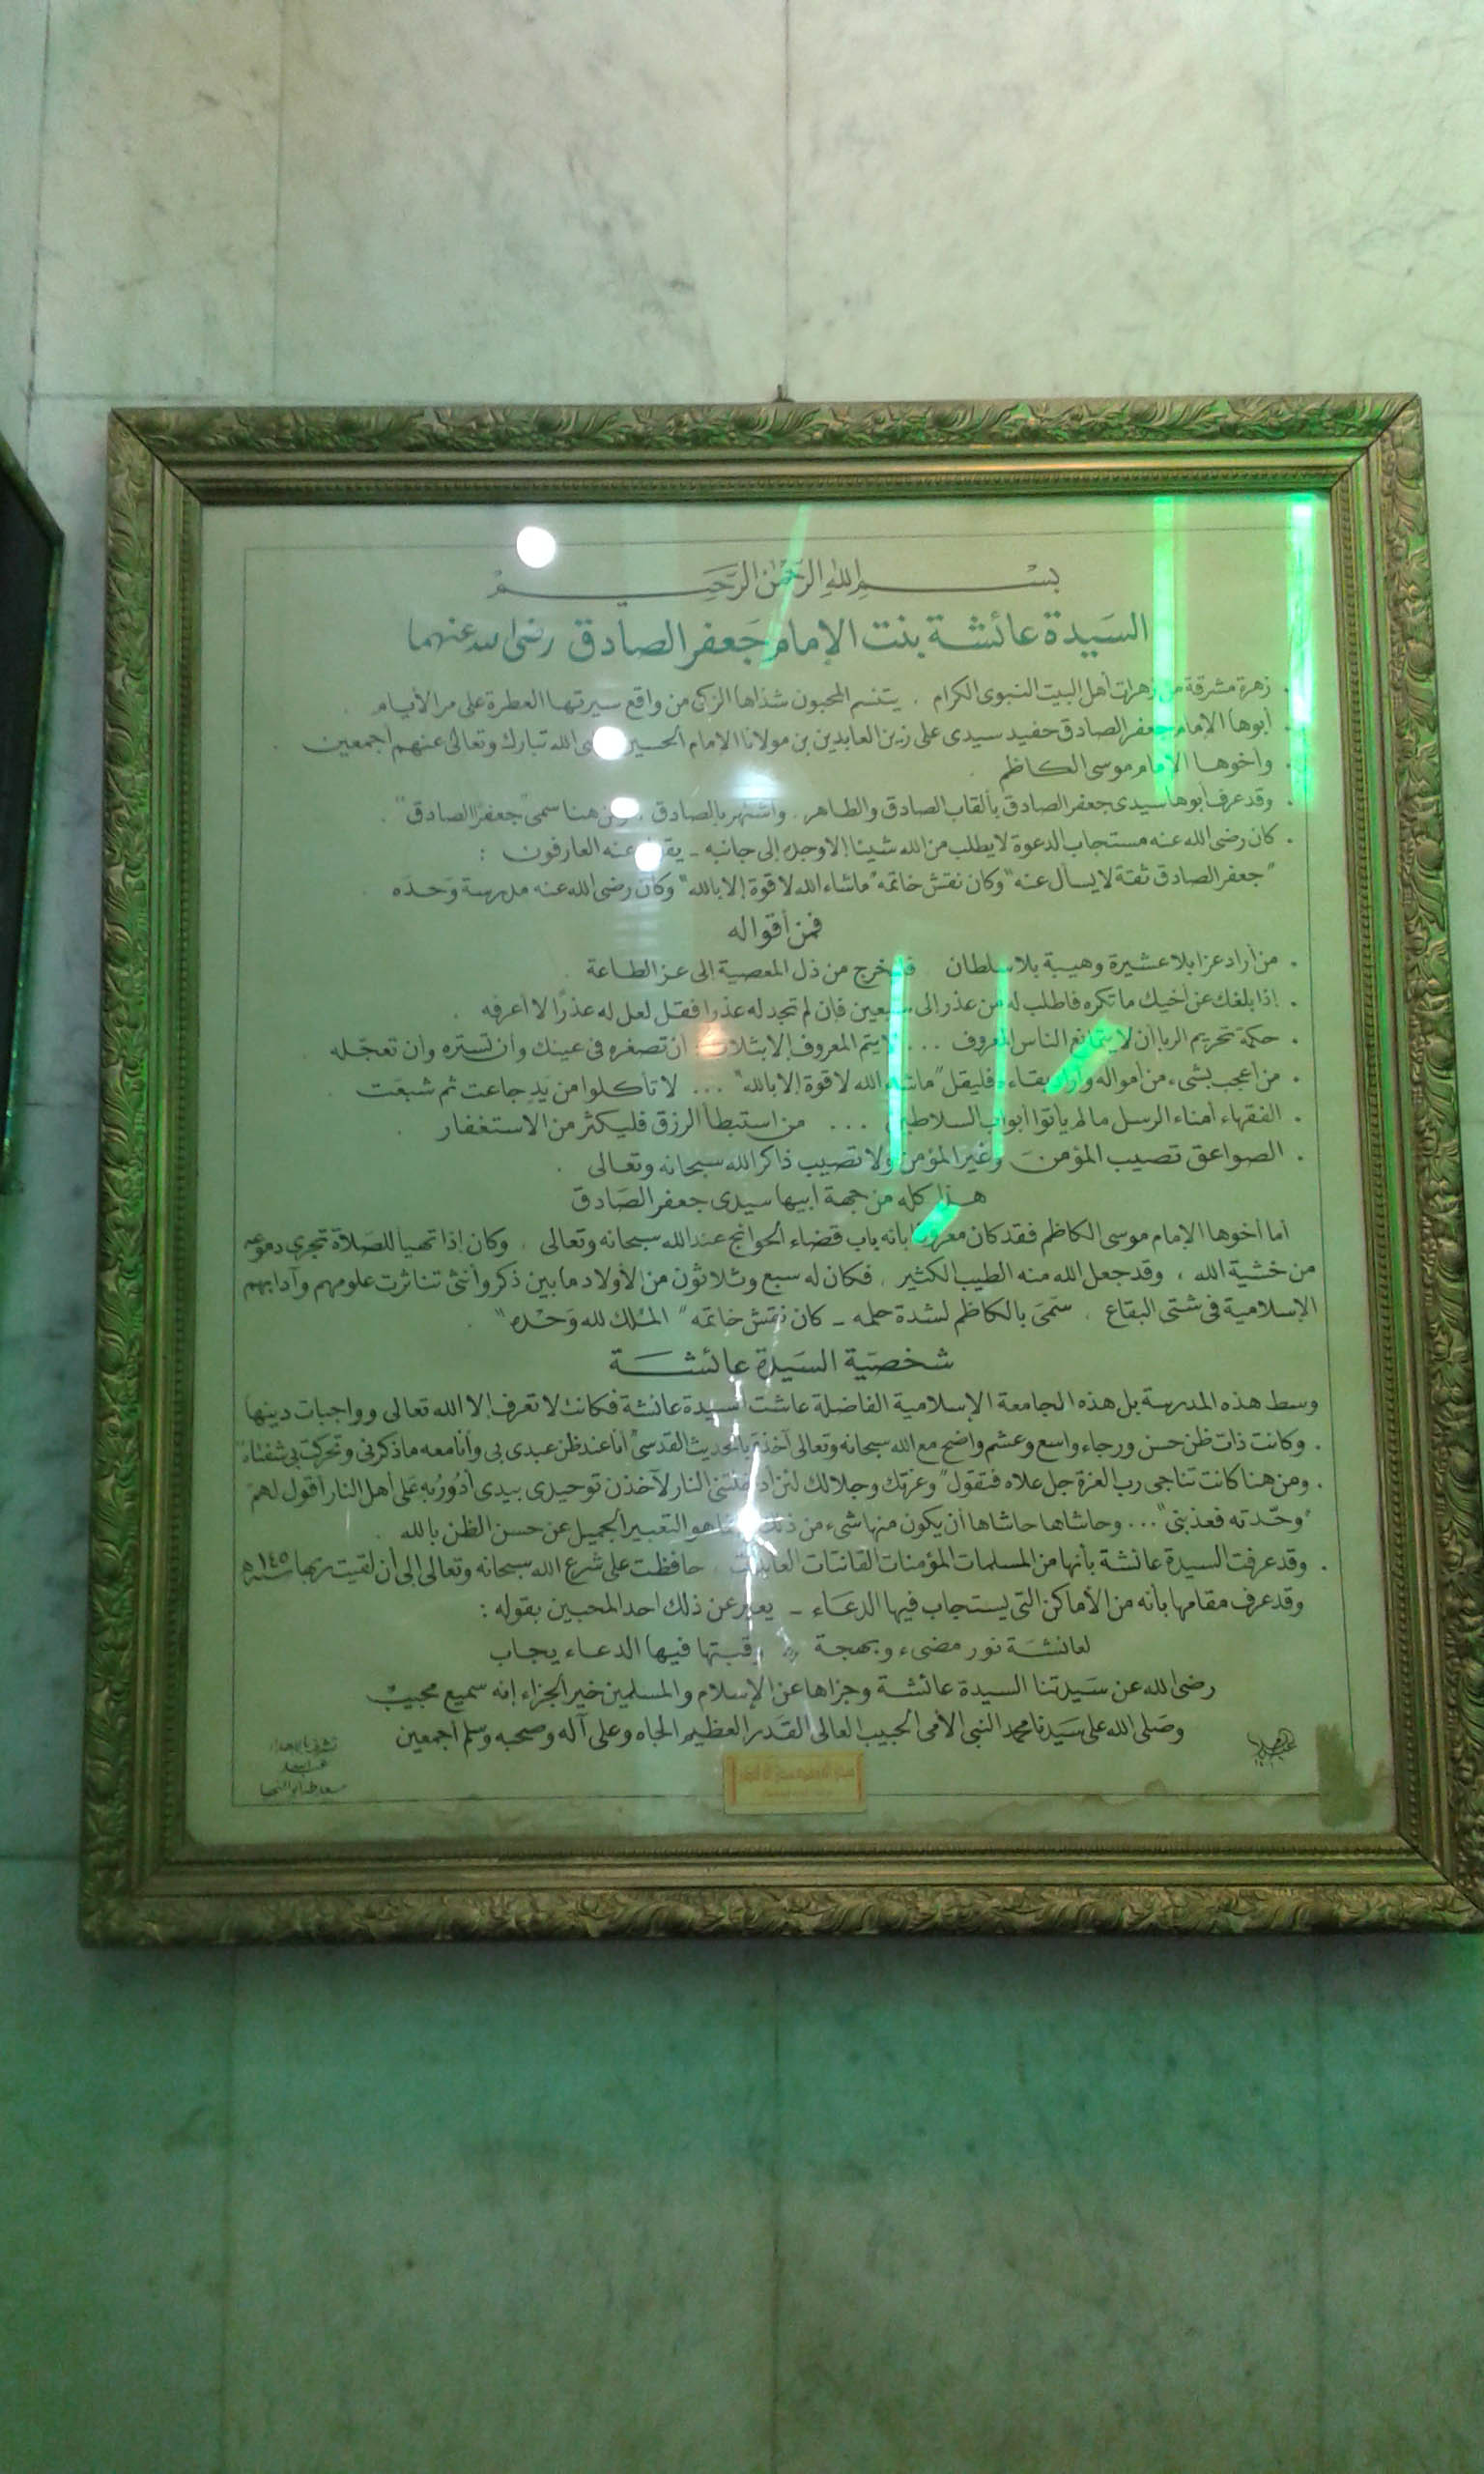 بسم الله الرحمن الرحيم
السيدة عائشة بنت الإمام جعفر الصادق رضى الله عنهما
. زهرة مشرقة من زهرات أهل البيت النبوى الكرام . يتنسم المحبون شذاها الزكى من واقع سيرتها العطرة على مر الأيام .
. أبوها الإمام جعفر الصادق حفيد سيدى على زين العابدين بن مولانا الإمام الحسين رضى الله تبارك وتعالى عنهم أجمعين .
. وأخوها الإمام موسى الكاظم .
. وقد عرف أبوها سيدى جعفر الصادق بألقاب الصادق والطاهر . واشتهر بالصادق . ومن هنا سمى "جعفر الصادق" .
. كان رضى الله عنه مستجاب الدعوة لا يطلب من الله شيئا إلا وجده إلى جانبه - يقول عنه العارفون :
"جعفر الصادق ثقة لا يسأل عنه" وكان نقش خاتمه "ماشاء الله لا قوة إلا بالله" وكان رضى الله عنه مدرسة وَحدَه
فمن أقواله
. من أراد عزا بلا عشيرة وهيبة بلا سلطان فليخرج من ذل المعصية إلى عز الطاعة .
. إذا بلغك عن أخيك ما تكره فاطلب له من عذر إلى سبعين فإن لم تجد له عذرا فقل لعل له عذرًا لا أعرفه .
. حكمة تحريم الربا أن لا يتمانع الناس المعروف ... لا يتم المعروف إلا بثلاث : أن تصغره فى عينك وأن تستره وأن تعجّله .
. من أعجب بشىء من أمواله وأراد بقاءه فليقل "ماشاء الله لا قوة إلا بالله" ... لا تأكلوا من يَدٍ جاعت ثم شبعت .
. الفقهاء أمناء الرسل ما لم يأتوا أبواب السلاطين ... من استبطأ الرزق فليكثر من الاستغفار .
. الصواعق تصيب المؤمن وغير المؤمن ولا تصيب ذاكر الله سبحانه وتعالى .
هذا كله من جهة أبيها سيدى جعفر الصادق
أما أخوها الإمام موسى الكاظم فقد كان معروفا بأنه باب قضاء الحوائج عند الله سبحانه وتعالى . وكان إذا تهيأ للصلاة تجرى دموعه
من خشية الله ، وقد جعل الله منه الطيب الكثير . فكان له سبع وثلاثون من الأولاد ما بين ذكر وأنثى تناثرت علومهم وآدابهم
الإسلامية فى شتى البقاع . سمّى بالكاظم لشدة حلمه - كان نقش خاتمه "الملك لله وَحْده" .
شخصية السيدة عائشة
وسط هذه المدرسة بل هذه الجامعة الإسلامية الفاضلة عاشت السيدة عائشة فكانت لا تعرف إلا الله تعالى وواجبات دينها
. وكانت ذات ظن حسن ورجاء واسع وعشم واضح مع الله سبحانه وتعالى آخذة بالحديث القدسى "أنا عند ظن عبدى بى وأنا معه ما ذكرنى وتحركت بى شفتاه"
. ومن هنا كانت تناجى رب العزة جل علاه فتقول "وعزتك وجلالك لئن أدخلتنى النار لآخذن توحيدى بيدى أدُورُ به على أهل النار أقول لهم
"وحّدته فعذبنى" ... وحاشاها حاشاها أن يكون منها شىء من ذلك إنما هو التعبير الجميل عن حسن الظن بالله .
. وقد عرفت السيدة عائشة بأنها من المسلمات المؤمنات القانتات العابدات . حافظت على شرع الله سبحانه وتعالى إلى أن لقيت ربها سنة ١٤٥هـ
وقد عرف مقامها بأنه من الأماكن التى يستجاب فيها الدعاء - يعبر عن ذلك أحد المحبين بقوله :
لعائشة نور مضىء وبهجة قبتها فيها الدعاء يجاب
رضى الله عن سيدتنا السيدة عائشة وجزاها عن الإسلام والمسلمين خير الجزاء إنه سميع مجيب
وصلى الله على سيدنا محمد النبى الأمى الحبيب العالى القدر العظيم الجاه وعلى آله وصحبه وسلم أجمعين